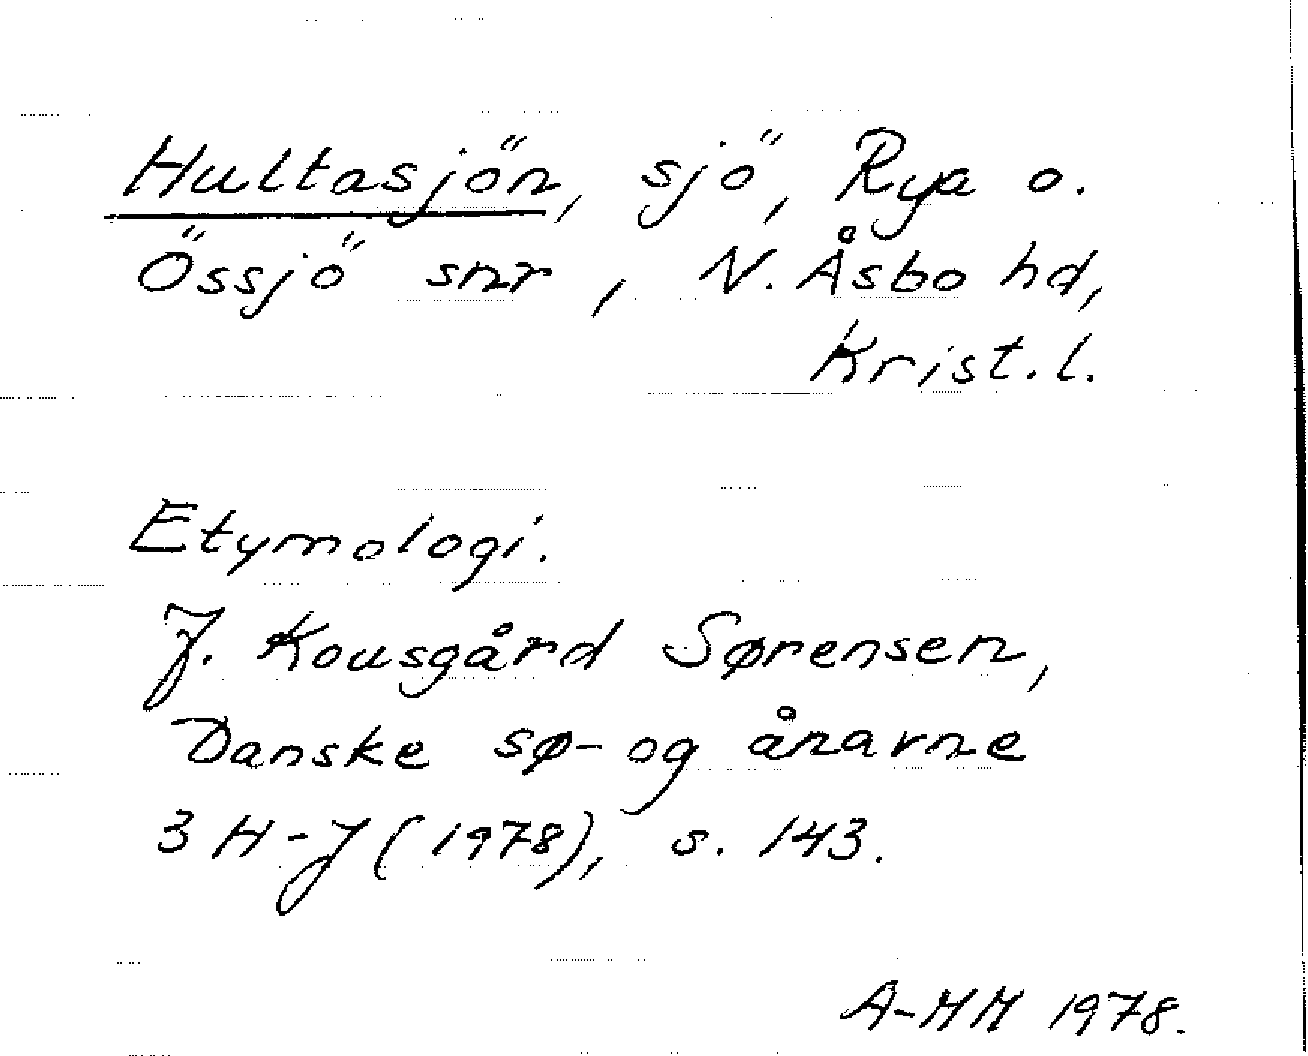 Hultasjön, sjö, Rya o.
Össjö snr, N. Åsbo hd,
Krist. l.
Etymologi.
J. Kousgård Sørensen,
Danske sø- og ånavne
3 H-J (1978), s. 143.
A-MM 1978.